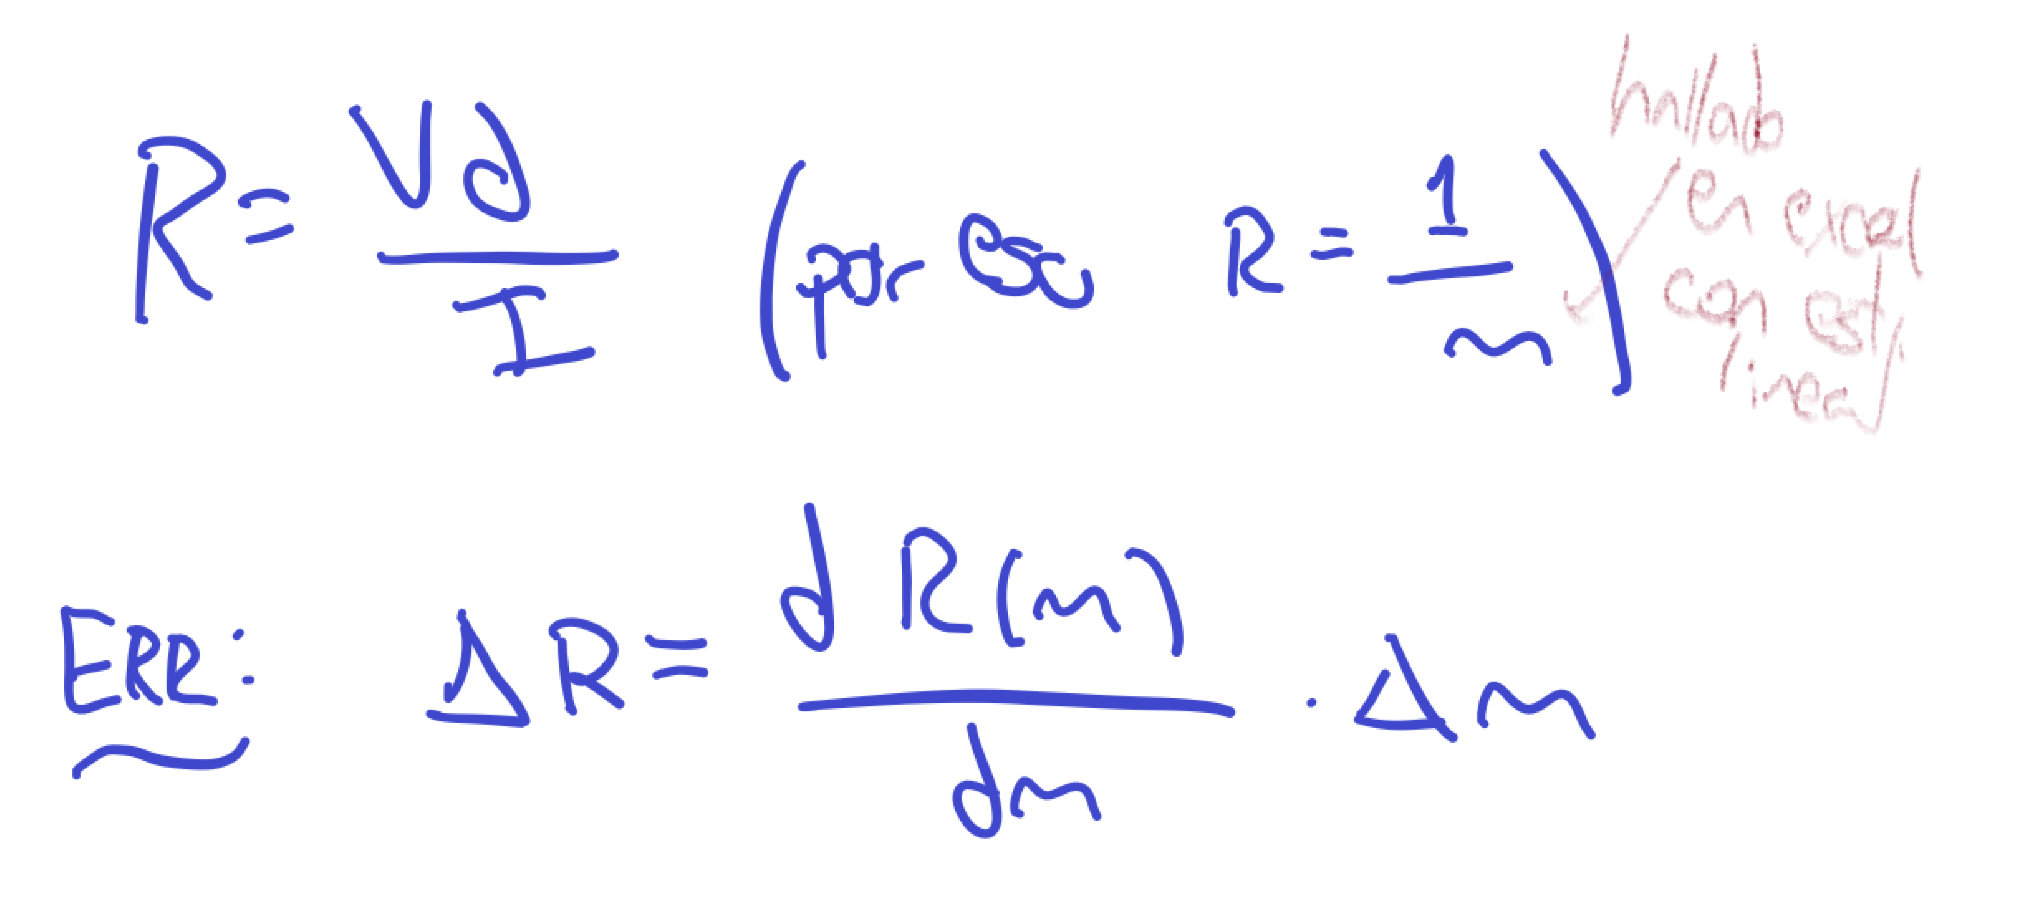 R = Vd / I (por eso R = 1 / m)
hallado
en excel
con est.
lineal
ERR: ΔR = d R(m) / dm · Δm